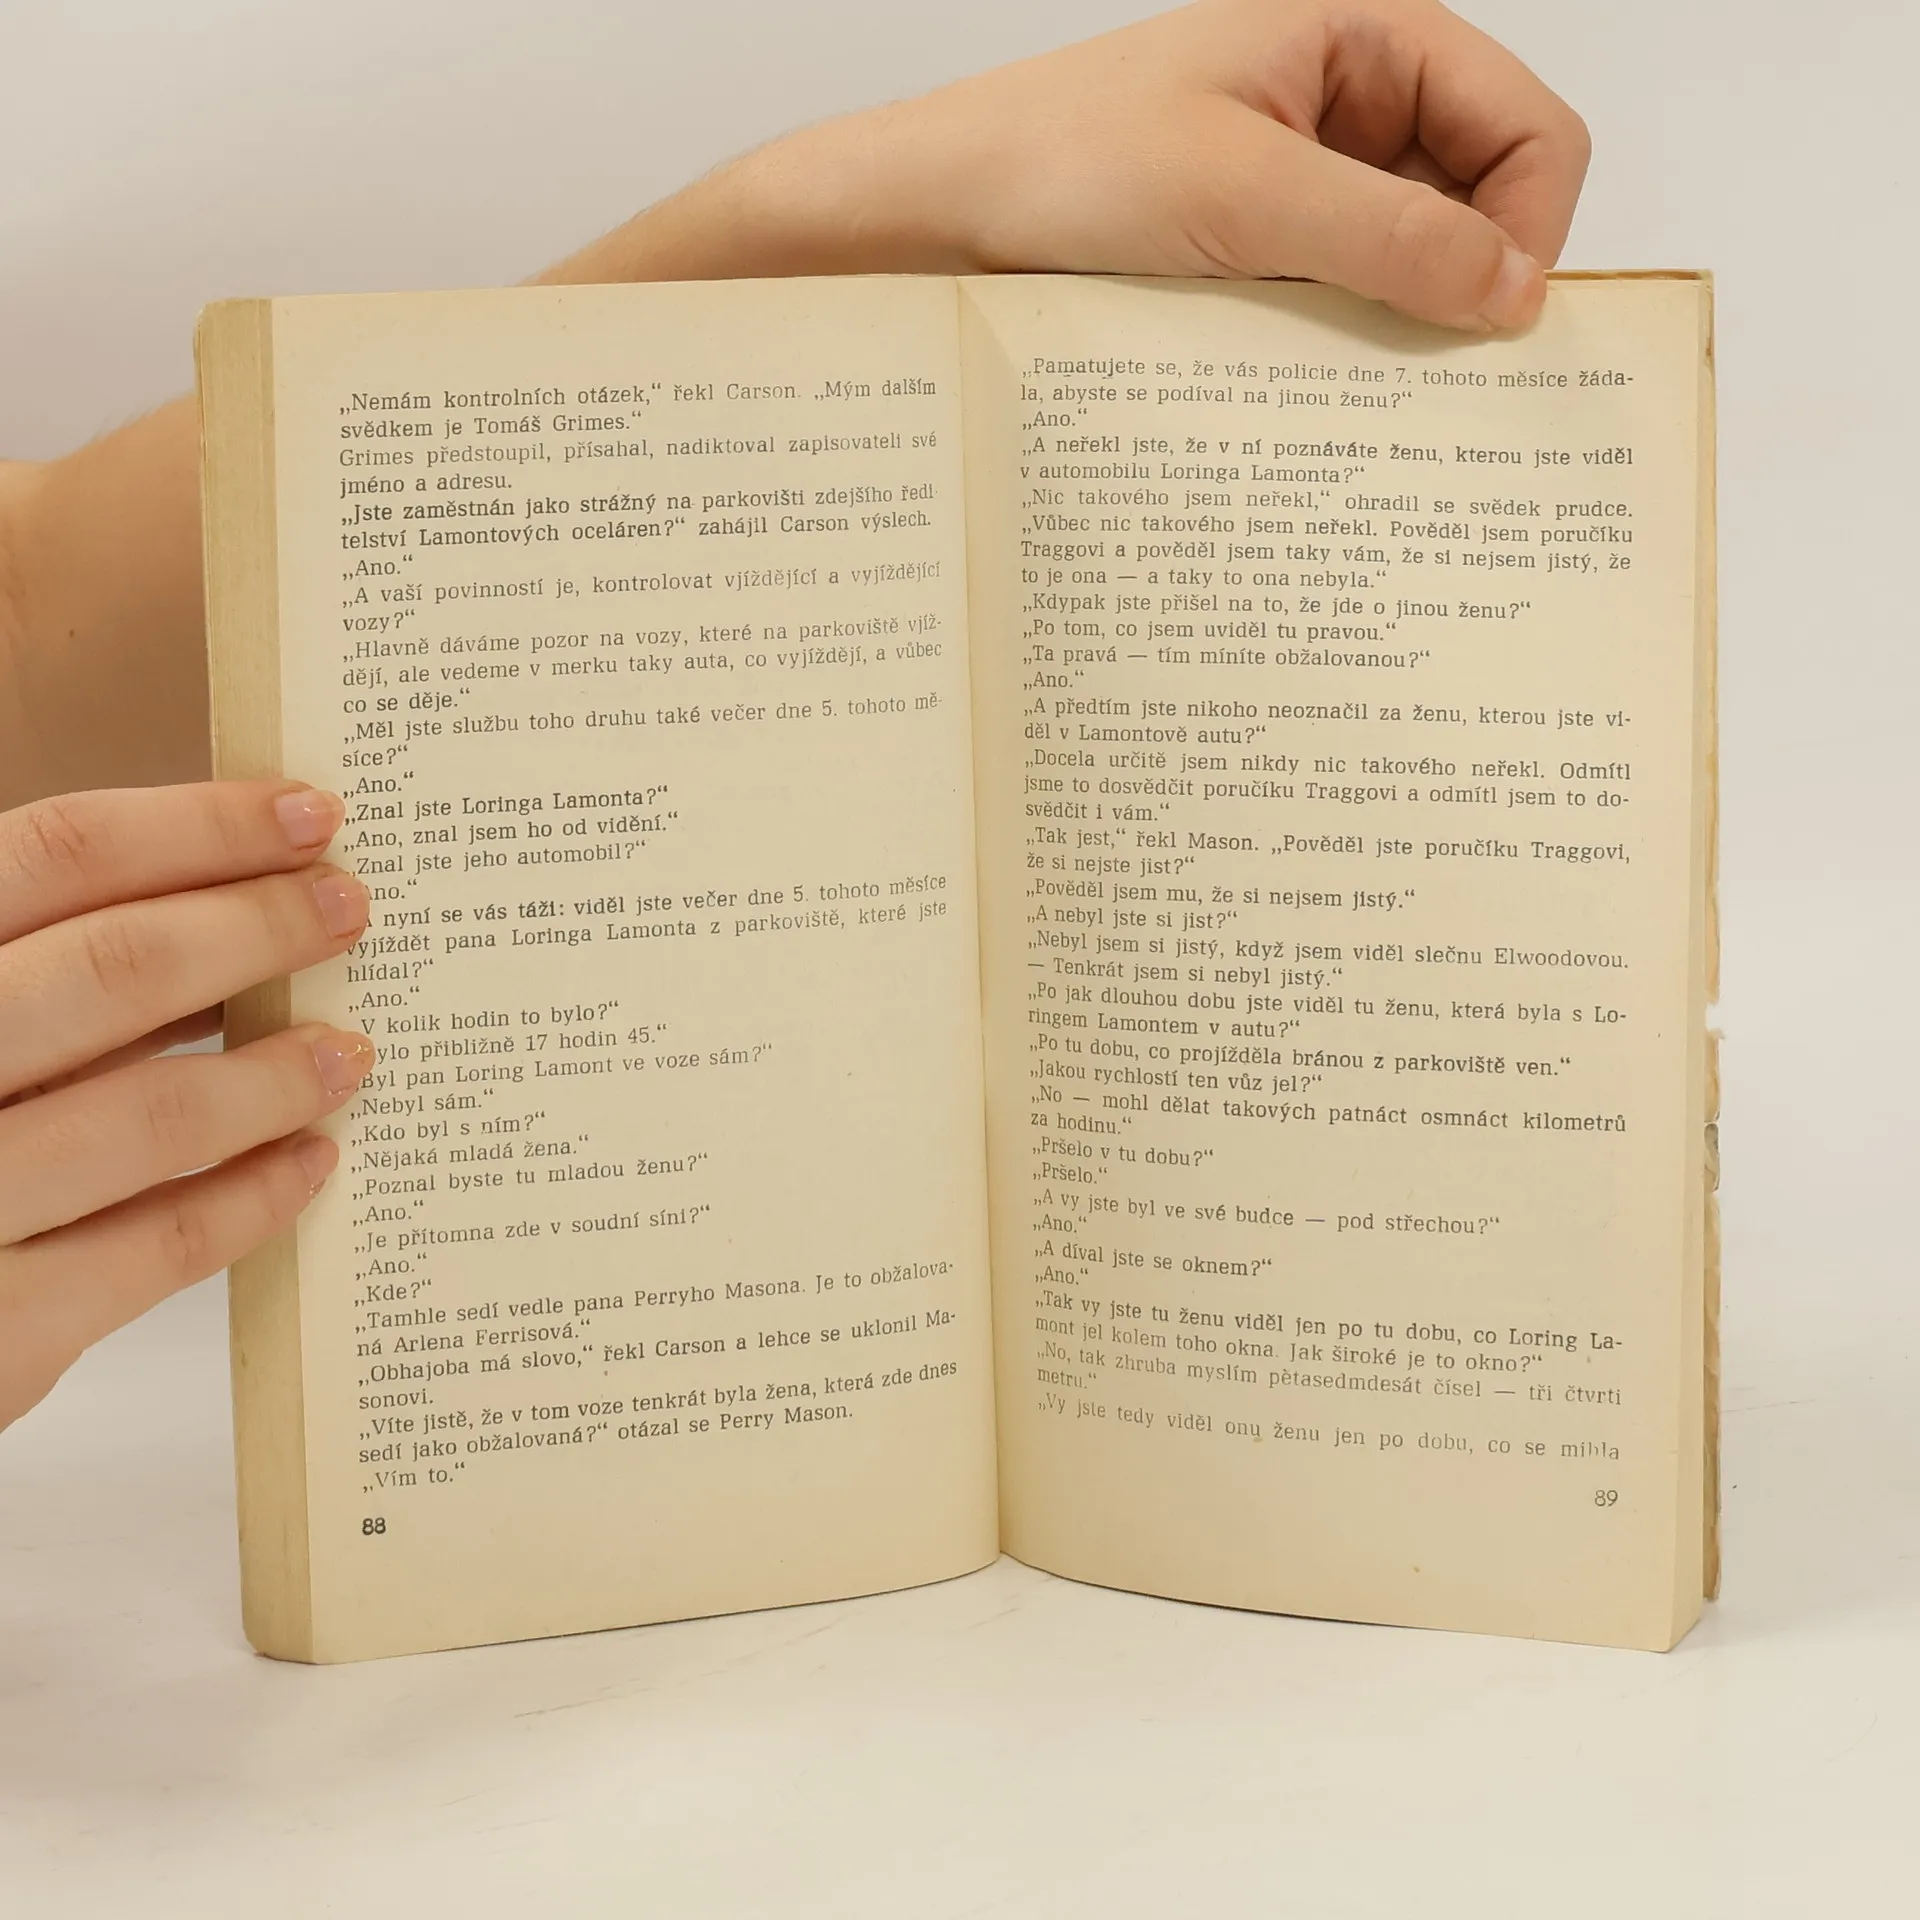 „Nemám kontrolních otázek,“ řekl Carson. „Mým dalším
svědkem je Tomáš Grimes.“
Grimes předstoupil, přísahal, nadiktoval zapisovateli své
jméno a adresu.
„Jste zaměstnán jako strážný na parkovišti zdejšího ředi-
telství Lamontových oceláren?“ zahájil Carson výslech.
„Ano.“
„A vaší povinností je, kontrolovat vjíždějící a vyjíždějící
vozy?“
„Hlavně dáváme pozor na vozy, které na parkoviště vjíž-
dějí, ale vedeme v merku taky auta, co vyjíždějí, a vůbec
co se děje.“
„Měl jste službu toho druhu také večer dne 5. tohoto mě-
síce?“
„Ano.“
„Znal jste Loringa Lamonta?“
„Ano, znal jsem ho od vidění.“
„Znal jste jeho automobil?“
Ano.“
A nyní se vás táži: viděl jste večer dne 5. tohoto měsíce
vyjíždět pana Loringa Lamonta z parkoviště, které jste
hlídal?“
„Ano.“
V kolik hodin to bylo?“
ylo přibližně 17 hodin 45.“
„Byl pan Loring Lamont ve voze sám?“
„Nebyl sám.“
„Kdo byl s ním?“
„Nějaká mladá žena.“
„Poznal byste tu mladou ženu?“
„Ano.“
„Je přítomna zde v soudní síni?“
„Ano.“
„Kde?“
„Tamhle sedí vedle pana Perryho Masona. Je to obžalova-
ná Arlena Ferrisová.“
„Obhajoba má slovo,“ řekl Carson a lehce se uklonil Ma-
sonovi.
„Víte jistě, že v tom voze tenkrát byla žena, která zde dnes
sedí jako obžalovaná?“ otázal se Perry Mason.
„Vím to.“
88
„Pamatujete se, že vás policie dne 7. tohoto měsíce žáda-
la, abyste se podíval na jinou ženu?“
„Ano.“
„A neřekl jste, že v ní poznáváte ženu, kterou jste viděl
v automobilu Loringa Lamonta?“
„Nic takového jsem neřekl,“ ohradil se svědek prudce.
„Vůbec nic takového jsem neřekl. Pověděl jsem poručíku
Traggovi a pověděl jsem taky vám, že si nejsem jistý, že
to je ona — a taky to ona nebyla.“
„Kdypak jste přišel na to, že jde o jinou ženu?“
„Po tom, co jsem uviděl tu pravou.“
„Ta pravá — tím míníte obžalovanou?“
„Ano.“
„A předtím jste nikoho neoznačil za ženu, kterou jste vi-
děl v Lamontově autu?“
„Docela určitě jsem nikdy nic takového neřekl. Odmítl
jsme to dosvědčit poručíku Traggovi a odmítl jsem to do-
svědčit i vám.“
„Tak jest,“ řekl Mason. „Pověděl jste poručíku Traggovi,
že si nejste jist?“
„Pověděl jsem mu, že si nejsem jistý.“
„A nebyl jste si jist?“
„Nebyl jsem si jistý, když jsem viděl slečnu Elwoodovou.
— Tenkrát jsem si nebyl jistý.“
„Po jak dlouhou dobu jste viděl tu ženu, která byla s Lo-
ringem Lamontem v autu?“
„Po tu dobu, co projížděla bránou z parkoviště ven.“
„Jakou rychlostí ten vůz jel?“
„No — mohl dělat takových patnáct osmnáct kilometrů
za hodinu.“
„Pršelo v tu dobu?“
„Pršelo.“
„A vy jste byl ve své budce — pod střechou?“
„Ano.“
„A díval jste se oknem?“
„Ano.“
„Tak vy jste tu ženu viděl jen po tu dobu, co Loring La-
mont jel kolem toho okna. Jak široké je to okno?“
„No, tak zhruba myslím pětasedmdesát čísel — tři čtvrti
metru.“
„Vy jste tedy viděl onu ženu jen po dobu, co se mihla
89